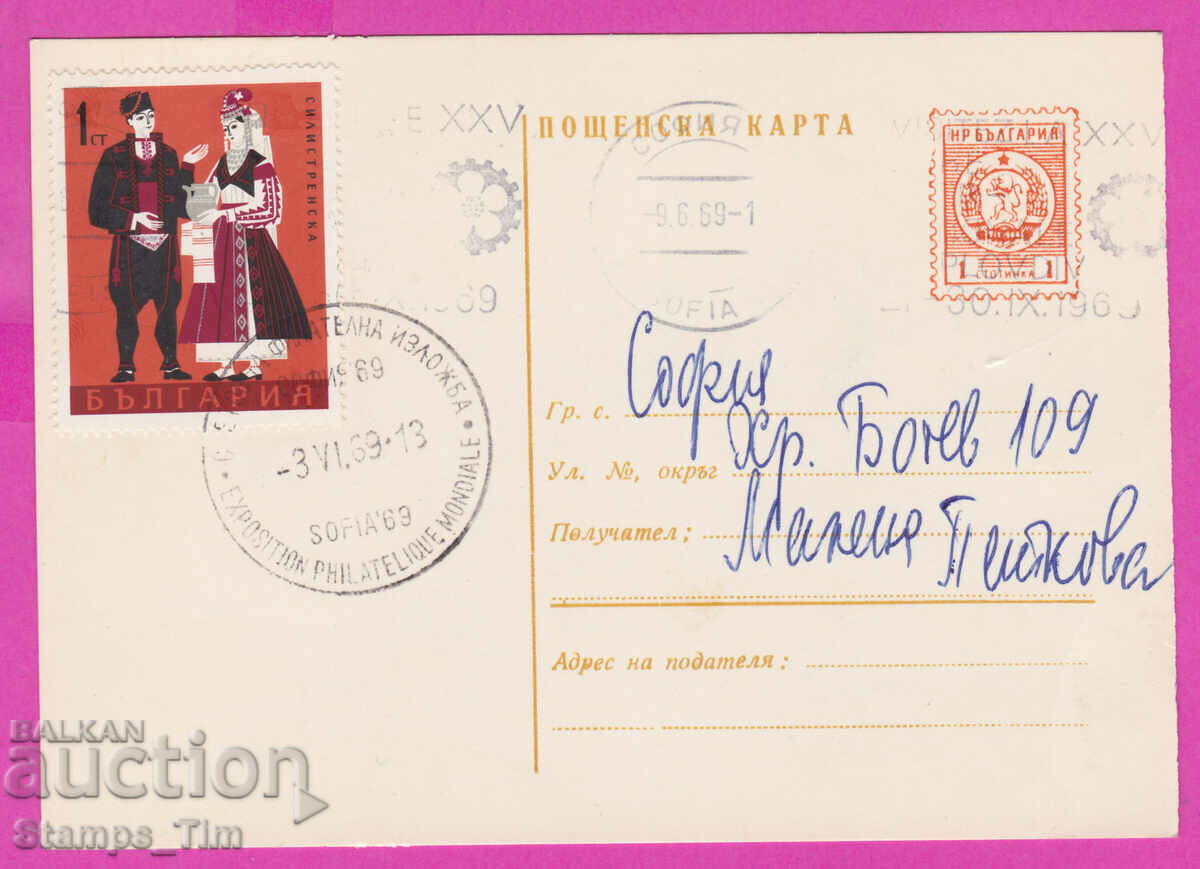 1 СТ
СИЛИСТРЕНСКА
БЪЛГАРИЯ
XXV
1969
ФИЛАТЕЛНА ИЗЛОЖБА
СОФИЯ'69
-3 VI.69.13
SOFIA'69
EXPOSITION PHILATELIQUE MONDIALE
ПОЩЕНСКА КАРТА
СОФИЯ
-9.6.69-1
SOFIA
XXV
НР БЪЛГАРИЯ
1 СТОТИНКА 1
PLOVDIV
30.IX.1969
Гр. с. София
Ул. №, окръг Хр. Ботев 109
Получател: Милена Петкова
Адрес на подателя:
BALKAN
auction
Stamps_Tim